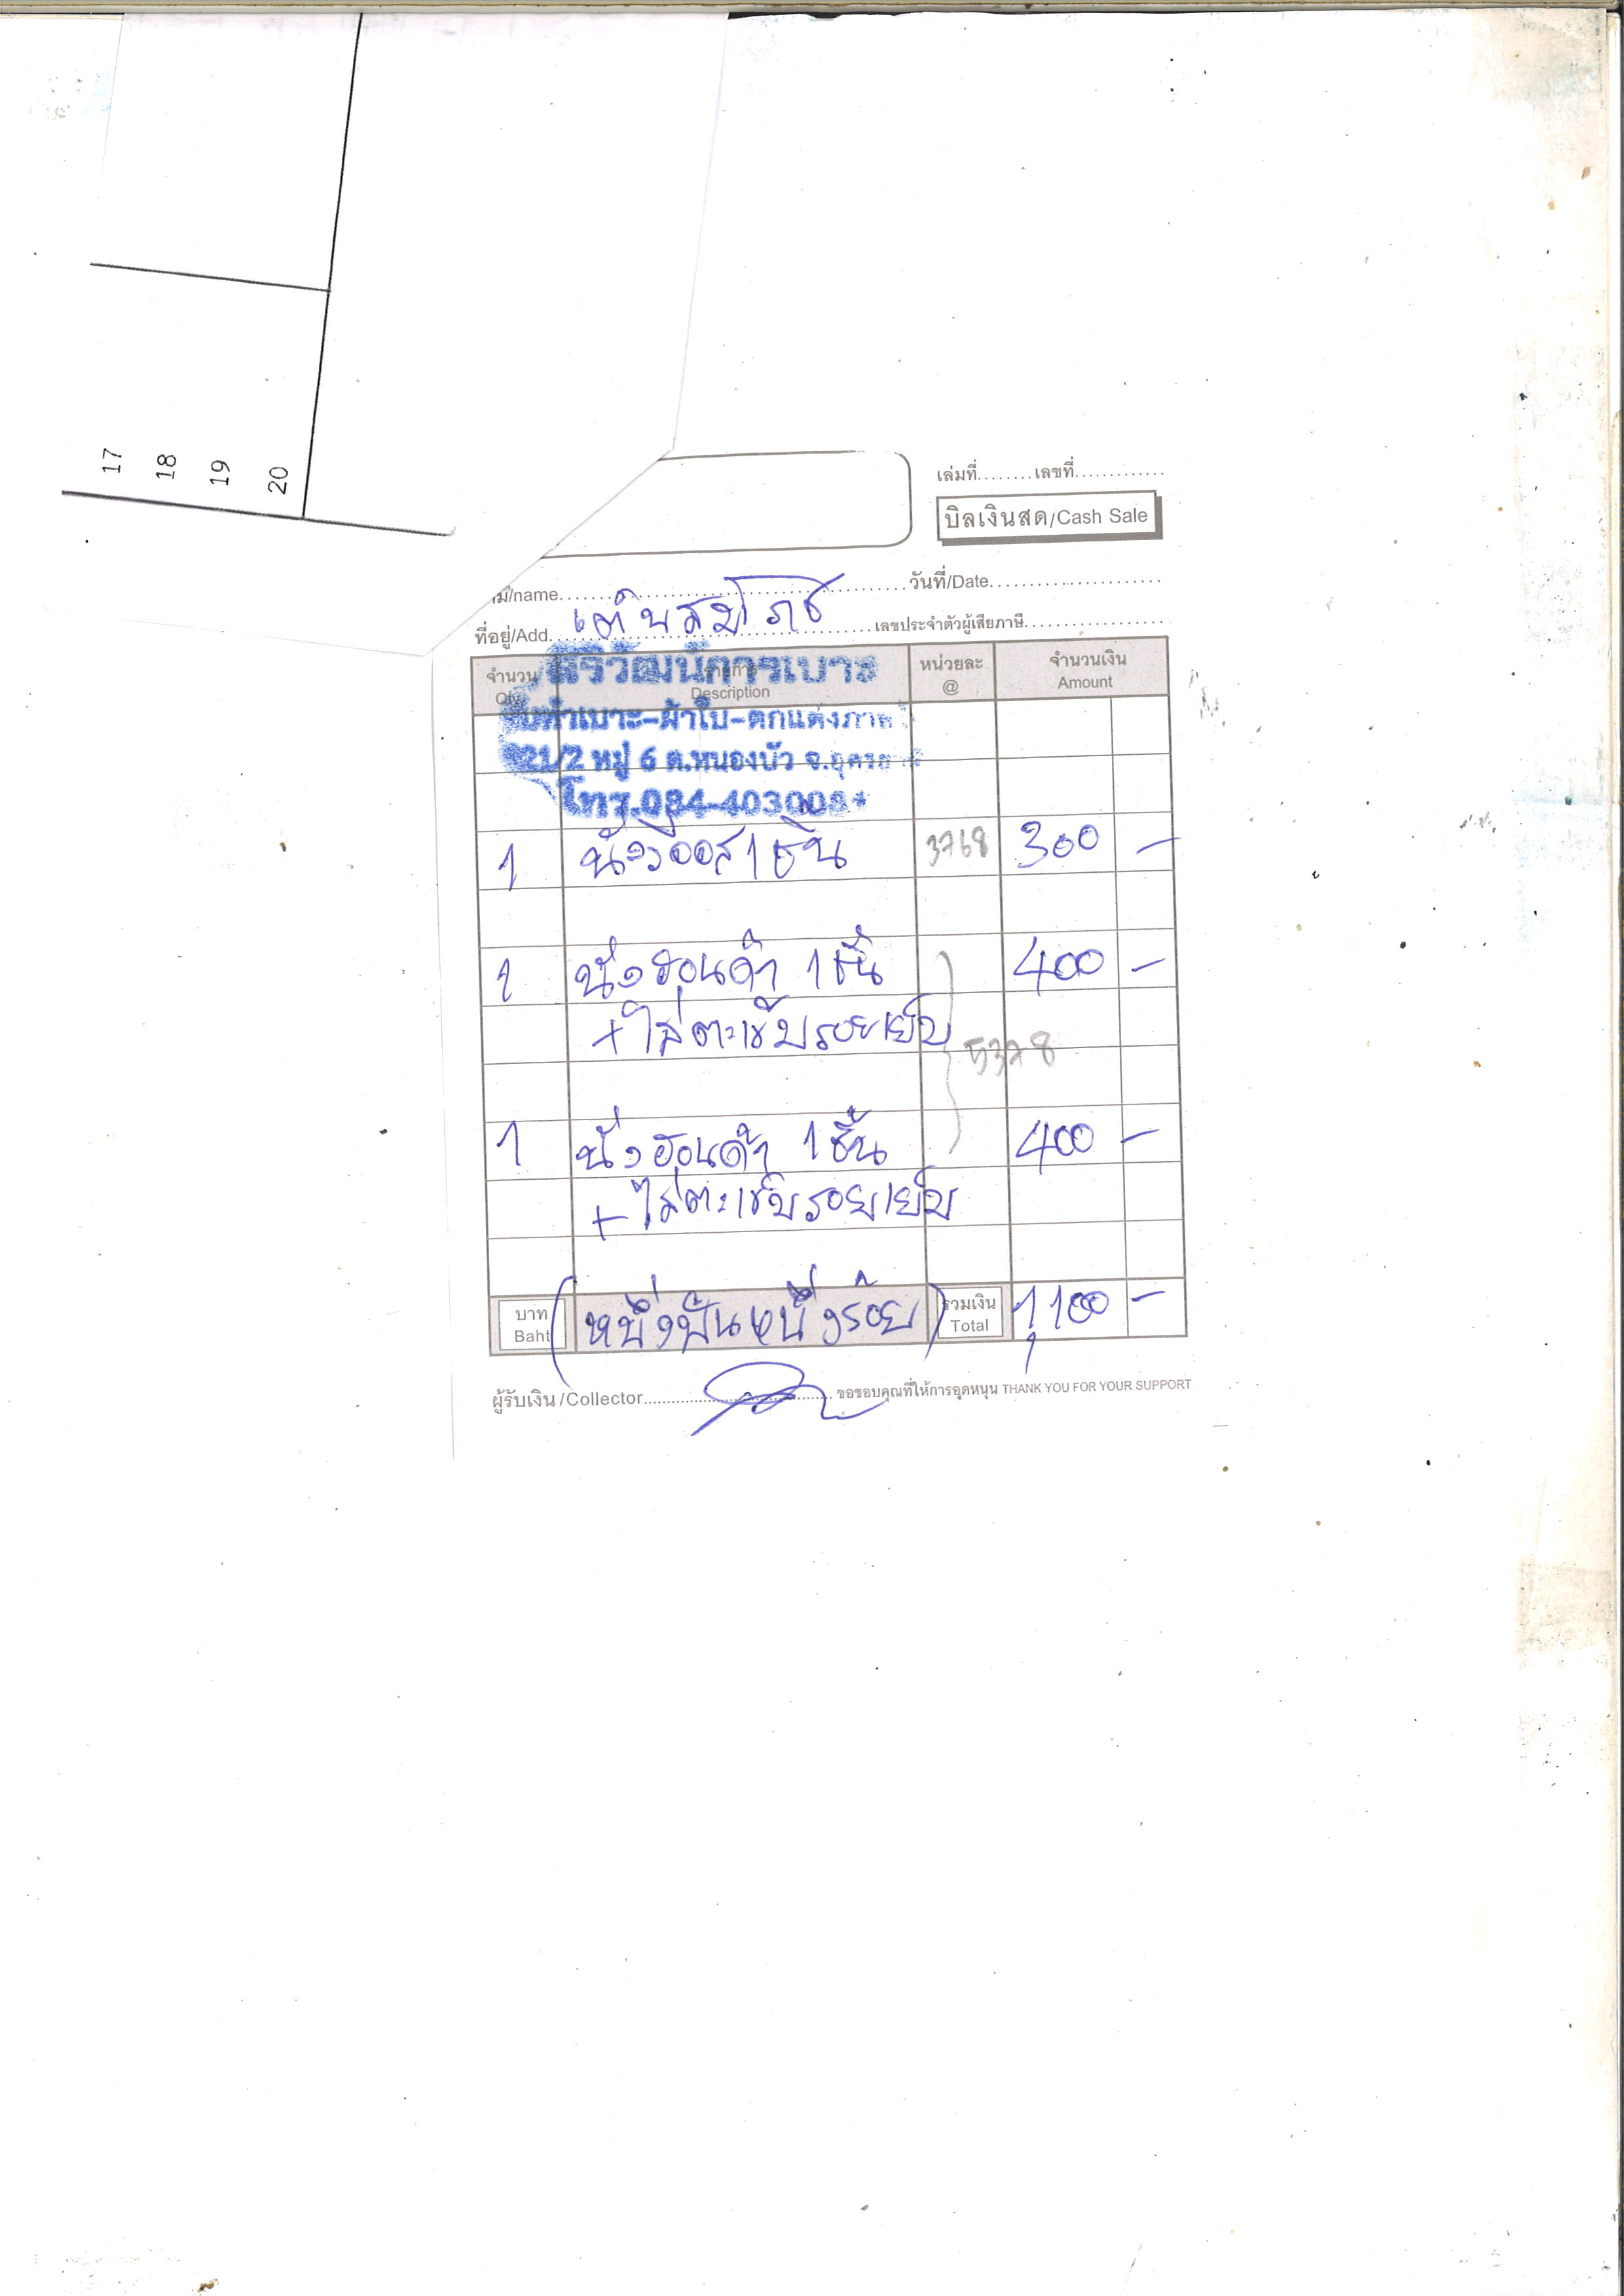 17
18
19
20
เล่มที่........เลขที่.............
บิลเงินสด/Cash Sale
/name. วันที่/Date.
เต็นสมโภช
ที่อยู่/Add. เลขประจำตัวผู้เสียภาษี.
จำนวน Qty. Description หน่วยละ @ จำนวนเงิน Amount
ศิริวัฒน์การเบาะ
รับทำเบาะ-ผ้าใบ-ตกแต่งภาย
321/2 หมู่ 6 ต.หนองบัว จ.อุดร
โทร.084-403008
1 นั่งวีออส 1 ชิ้น 3768 300 -
1 นั่งฮอนด้า 1 ชิ้น 400 -
+ ใส่ตะเข็บรอยเย็บ
5378
1 นั่งฮอนด้า 1 ชิ้น 400 -
+ ใส่ตะเข็บรอยเย็บ
บาท Baht (หนึ่งพันหนึ่งร้อย) รวมเงิน Total 1,100 -
ผู้รับเงิน/Collector. ขอขอบคุณที่ให้การอุดหนุน THANK YOU FOR YOUR SUPPORT